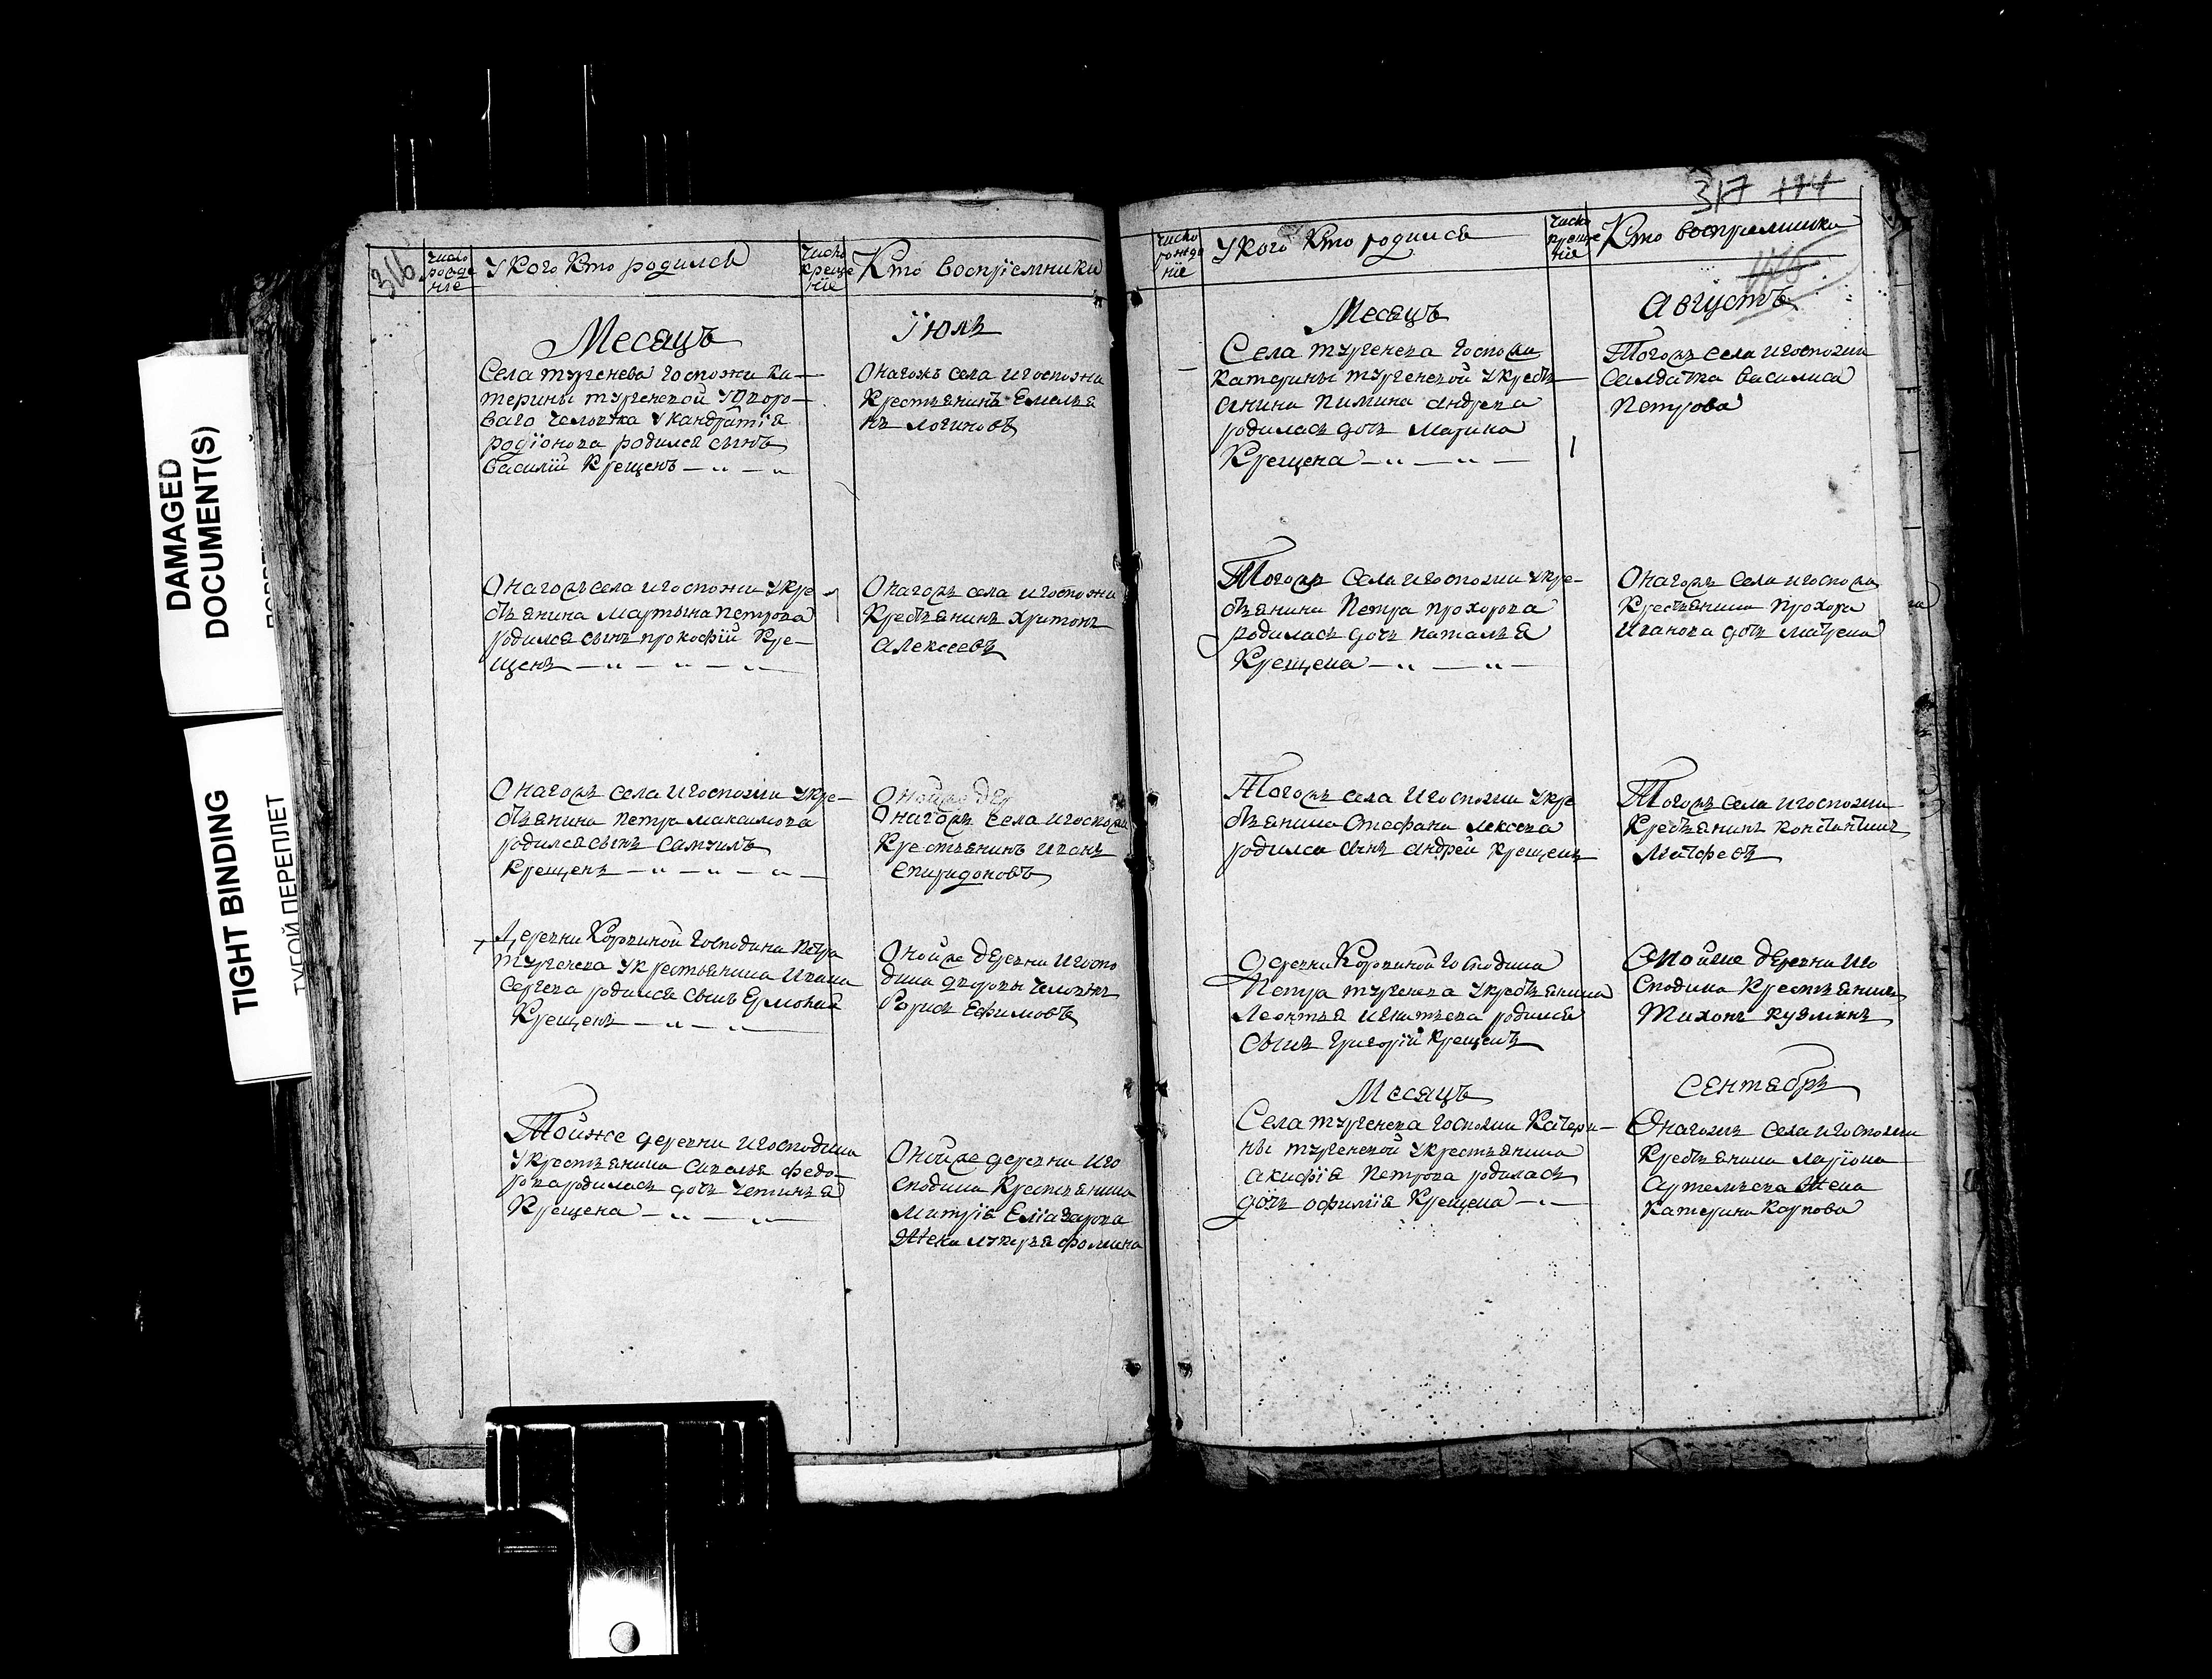 DAMAGED
DOCUMENT(S)
TIGHT BINDING
ТУГОЙ ПЕРЕПЛЕТ
316
число рожде ние
У кого кто родился
число креще ние
Кто восприемники
Месяцъ
Июль
Села тургенева Госпожи Ка-
терины тургеневой У дворо-
ваго человека У кандратiя
родiонова родился сынъ
Василiй Крещенъ
Онагожъ села и госпожи
Крестьянинъ Емелья
нъ логиновъ
Онагожъ села и госпожи У кре
стьянина Мартына Петрова
родился сынъ прокофiй Кре-
щенъ
Онагожъ села и госпожи
Крестьянинъ Харитонъ
Алексеевъ
Онагожъ села и госпожи У кре-
стьянина Петра Максимова
родился сынъ Самуилъ
Крещенъ
Онойже дер
Онагожъ села и госпожи
Крестьянинъ Иванъ
Спиридоновъ
Деревни Коровиной Господина Петра
тургенева У крестьянина Ивана
Сергева родился сынъ Ермолай
Крещенъ
Онойже деревни и госпо
дина дворовы человекъ
Борисъ Ефимовъ
Тойже деревни и господина
У крестьянина Савелья Федо-
рова родилась дочь Устинья
Крещена
Онойже деревни и го
сподина Крестьянина
Митрiя Елiазарова
Жена лукерья фомина
317
число рожде ние
У кого кто родился
число креще ние
Кто восприемники
Месяцъ
Августъ
Села тургенева Госпожи
Катерины тургеневой У кресть
янина Пимина Андрева
родилась дочь Марина
Крещена
Тогожъ села и госпожи
Салдатка Василиса
Петрова
Тогожъ села и госпожи У кре-
стьянина Петра прохорова
родилась дочь Наталья
Крещена
Онагожъ села и госпожи
Крестьянина Прохора
Иванова дочь Матрена
Тогожъ села и госпожи У кре
стьянина Стефана Лексева
родился сынъ Андрей Крещенъ
Тогожъ села и госпожи
Крестьянинъ Константинъ
Матфеевъ
Деревни Коровиной Господина
Петра тургенева У крестьянина
Леонтья Игнатьева родился
сынъ Григорiй Крещенъ
Онойже деревни и го
сподина Крестьянинъ
Тихонъ Кузминъ
Месяцъ
Сентябрь
Села тургенева госпожи Катери-
ны тургеневой У крестьянина
Акифiя Петрова родилась
дочь офимiя Крещена
Онагожъ села и госпожи
Крестьянина Ларiона
Артемьева Жена
Катерина Карпова